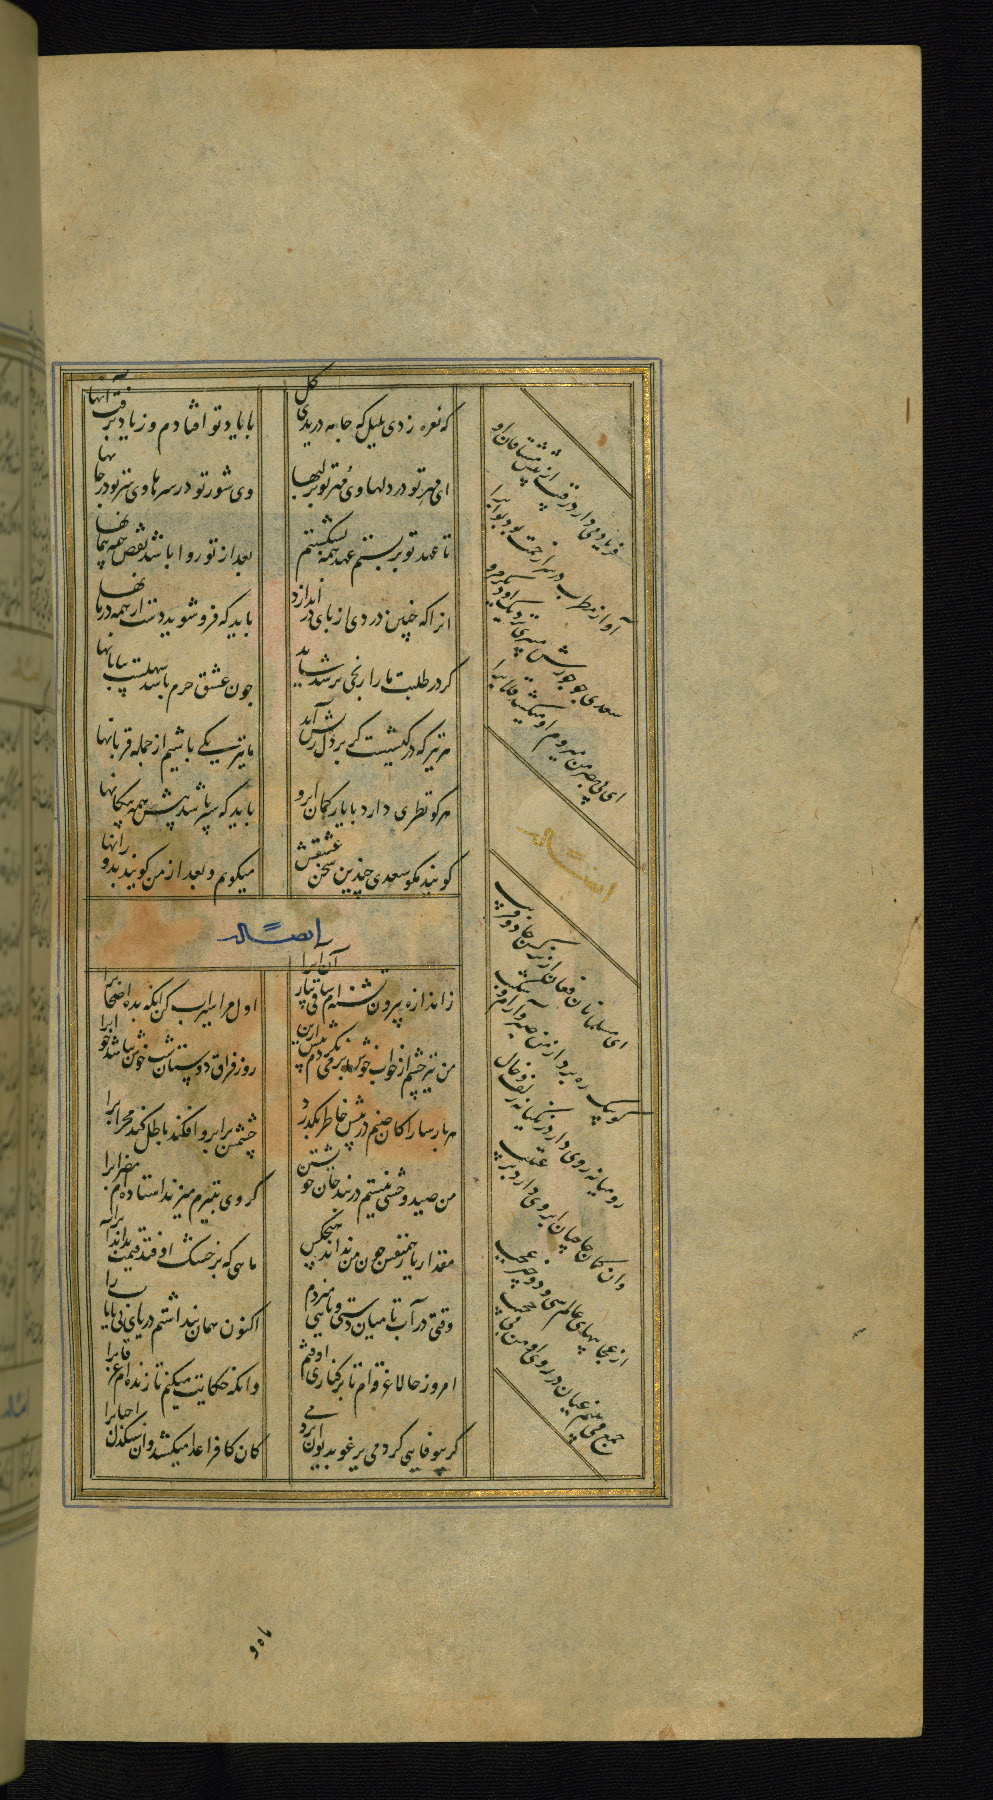 که نعره زدی بلبل که جامه دریدی گل
با یاد تو افتادم و زیاد برفت آنها
ای مهر تو در دلها وی مهر تو بر لبها
وی شور تو در سرها وی سر تو در جانها
تا عهد تو بر بستم عهد همه بشکستم
بعد از تو روا باشد نقض همه پیمانها
انرا که چنین دردی از پای در اندازد
باید که فرو شوید دست از همه درمانها
کر در طلبت ما را رنجی برسد شاید
چون عشق حرم باشد سهلست بیابانها
هر تیر که در کیشست کر بر دل ریش آید
ما نیز یکی باشیم از جمله قربانها
هر کو نظری دارد با یار کمان ابرو
باید که سپر باشد پیش همه پیکانها
کویند مکو سعدی چندین سخن عشقش
میکویم و بعد از من کویند بدورانها
ایضاً له
ز اندازه بیرون تشنه ام ساقی بیار آن آب را
اول مرا سیراب کن آنکه بده اصحاب را
من نیز چشم از خواب خوش بر نمی کردم پیش ازین
روز فراق دوستان شب خوش بباشد خواب را
هر پارسا را کان صنم در پیش خاطر بکذرد
چشمش بر ابرو افکند باطل کند محراب را
من صید وحشی نیستم در بند جان خویشتن
کر وی بتیرم میزند استاده ام نشاب را
مقدار یار همنفس چون من نداند هیچکس
ماهی که بر خشک اوفتد قیمت بداند آب را
وقتی در آب تا میان دستی و پایی میزدم
اکنون همان پنداشتم دریای بی پایاب را
امروز حالا غرقه ام تا بر کناری اوفتم
وانکه حکایت میکنم تا زنده ام غرقاب را
کر بیوفایی کردمی یرغو بدیوان بردمی
کان کافر اعدا میکشد وان سنکدل احباب را
فریاد می دارد رقیب از دست مشتاقان او
آواز مطرب در سرا زحمت بود بواب را
سعدی چو جورش میبری نزدیک او دیکر مرو
ای بی بصر من میروم او میکشد قلاب را
ایضاً له
ای مسلمانان فغان از نرکس
رومیانه روی دارد زنکیانه زلف و خال
وان کمان چاچیان ابروی دارد
از عجایبهای عالم سی و دو چیز عجیب
جمع می بینم عیان در روی او من بی حجیب